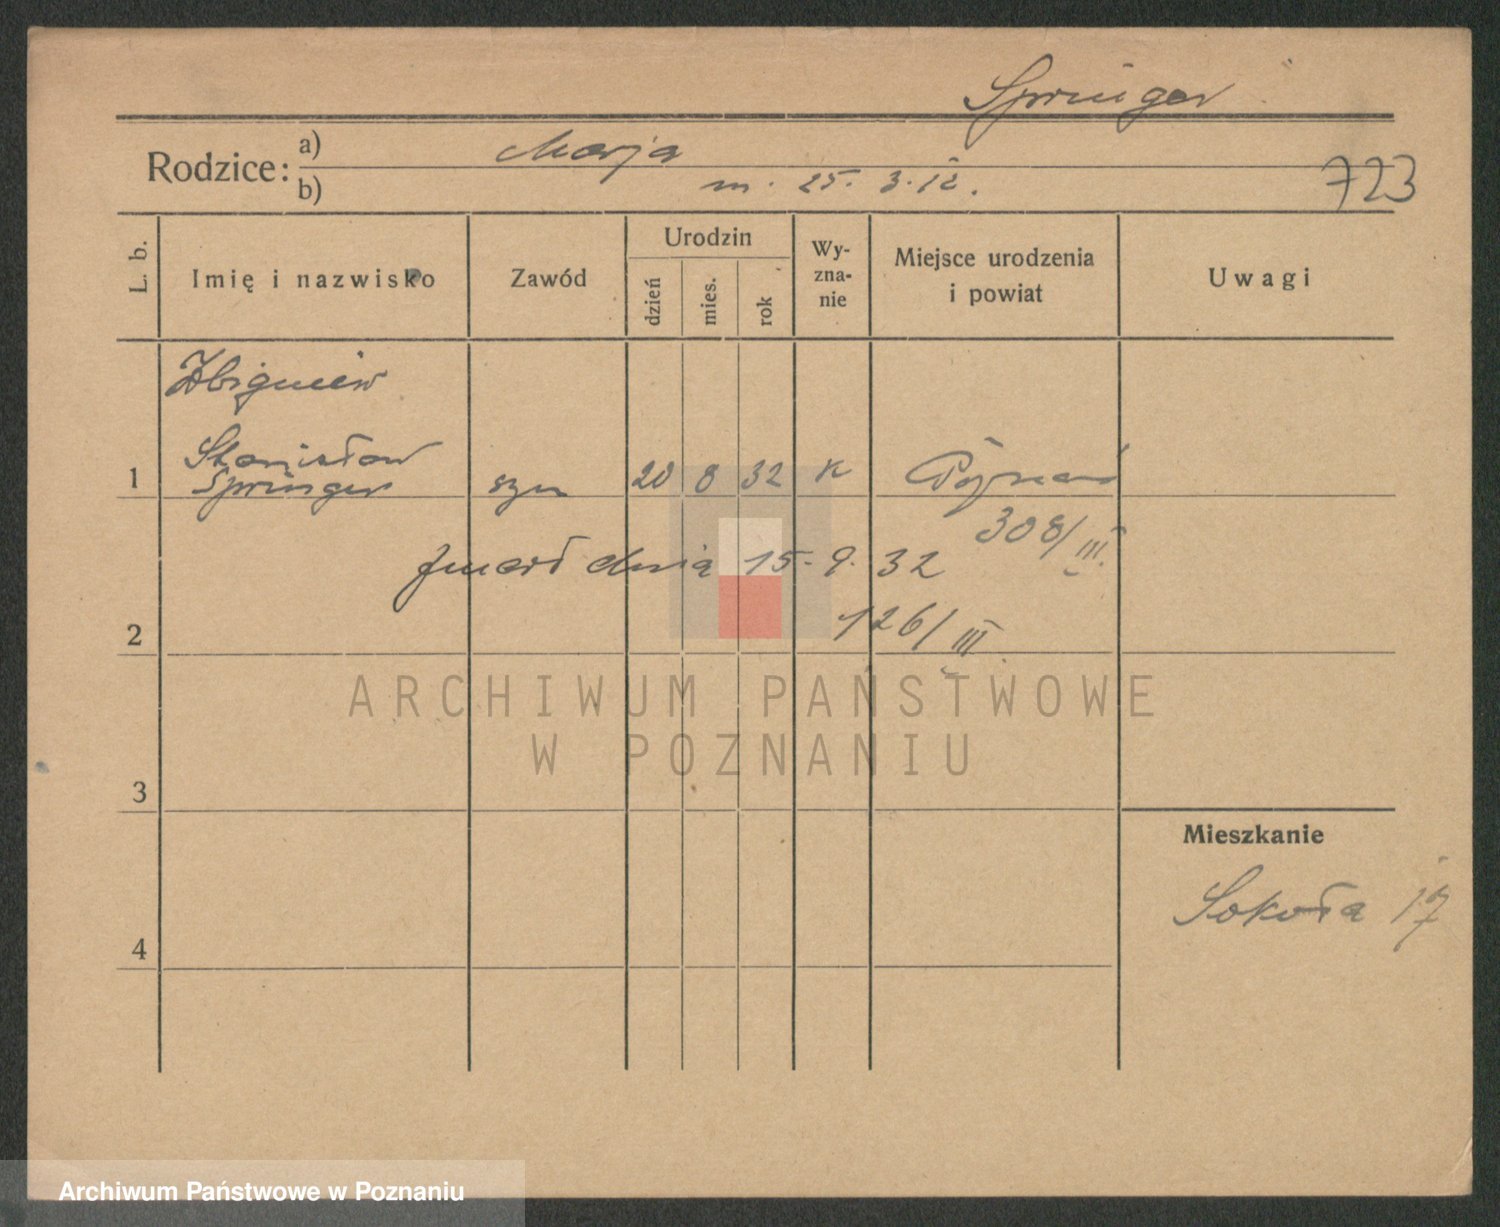 Springer
Rodzice:
a) Marja
b) m. 25. 3. 12.
723
L. b.
Imię i nazwisko
Zawód
Urodzin
dzień
mies.
rok
Wy-
zna-
nie
Miejsce urodzenia
i powiat
Uwagi
Zbigniew
Stanisław
1 Springer syn 20 8 32 K Poznań
308/III.
zmarł dnia 15. 9. 32
126/III.
2
ARCHIWUM PAŃSTWOWE
W POZNANIU
3
Mieszkanie
Sokoła 17
4
Archiwum Państwowe w Poznaniu